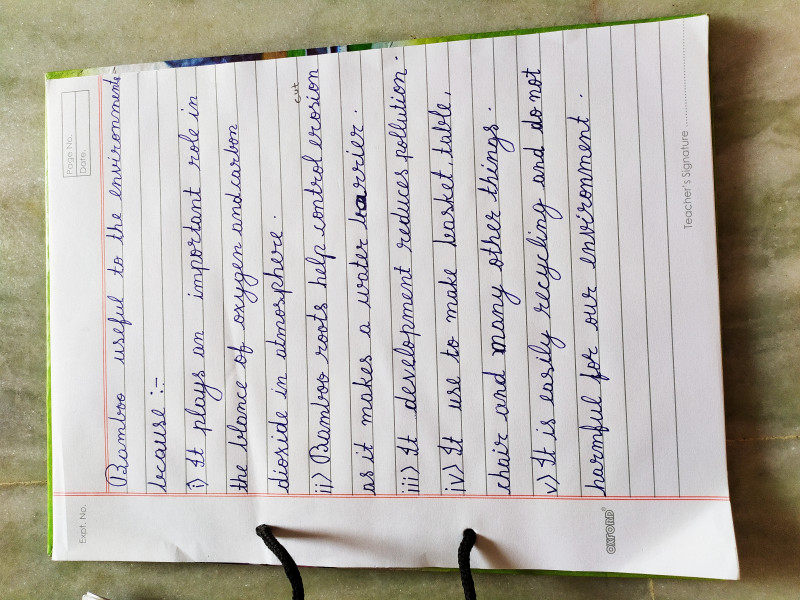 Page No.
Date.
Expt. No.
Bamboo useful to the environments
because :-
i) It plays an important role in
the blance of oxygen and carbon
dioxide in atmosphere.
cut
ii) Bamboo roots help control erosion
as it makes a water barrier.
iii) It development reduces pollution.
iv) It use to make basket, table,
chair and many other things.
v) It is easily recycling and do not
harmful for our environment.
OXFORD®
Teacher's Signature